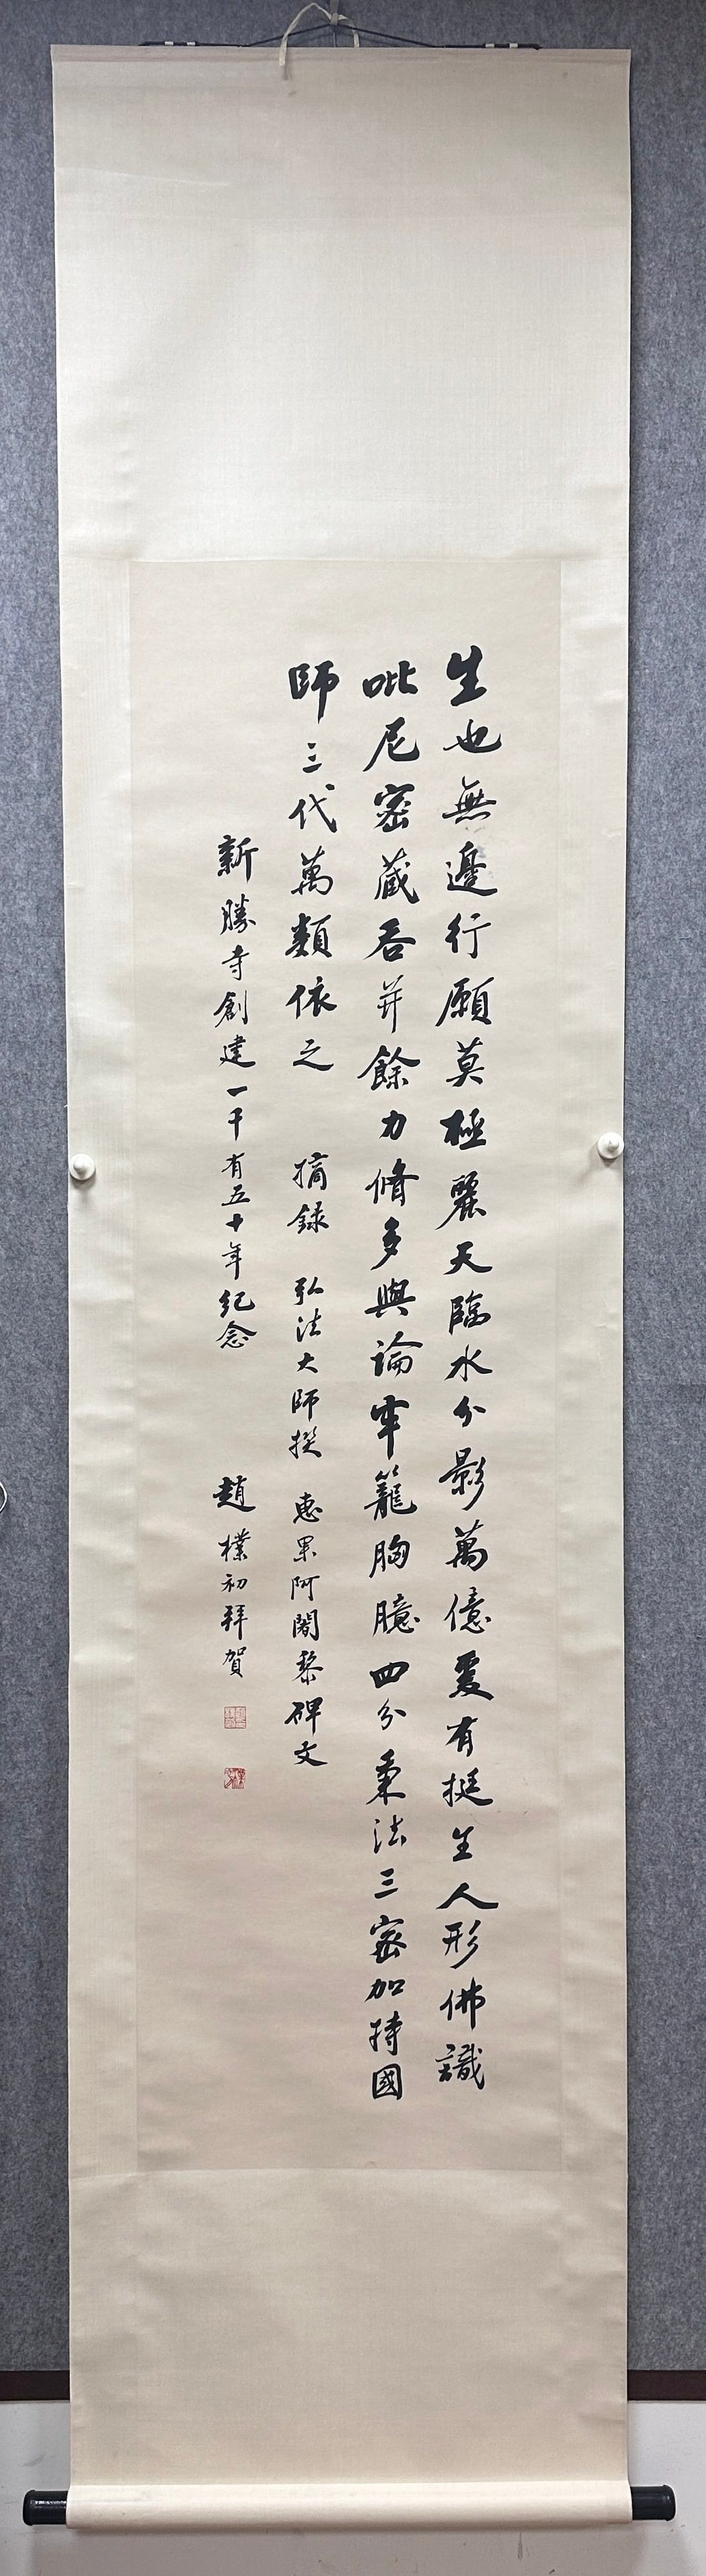 生也無邊行願莫極麗天臨水分影萬億爰有挺生人形佛識
毗尼密藏吞并餘力脩多與論牢籠胸臆四分秉法三密加持國
師三代萬類依之 摘録 弘法大師撰 惠果阿闍黎碑文
新勝寺創建一千有五十年紀念 趙樸初拜賀